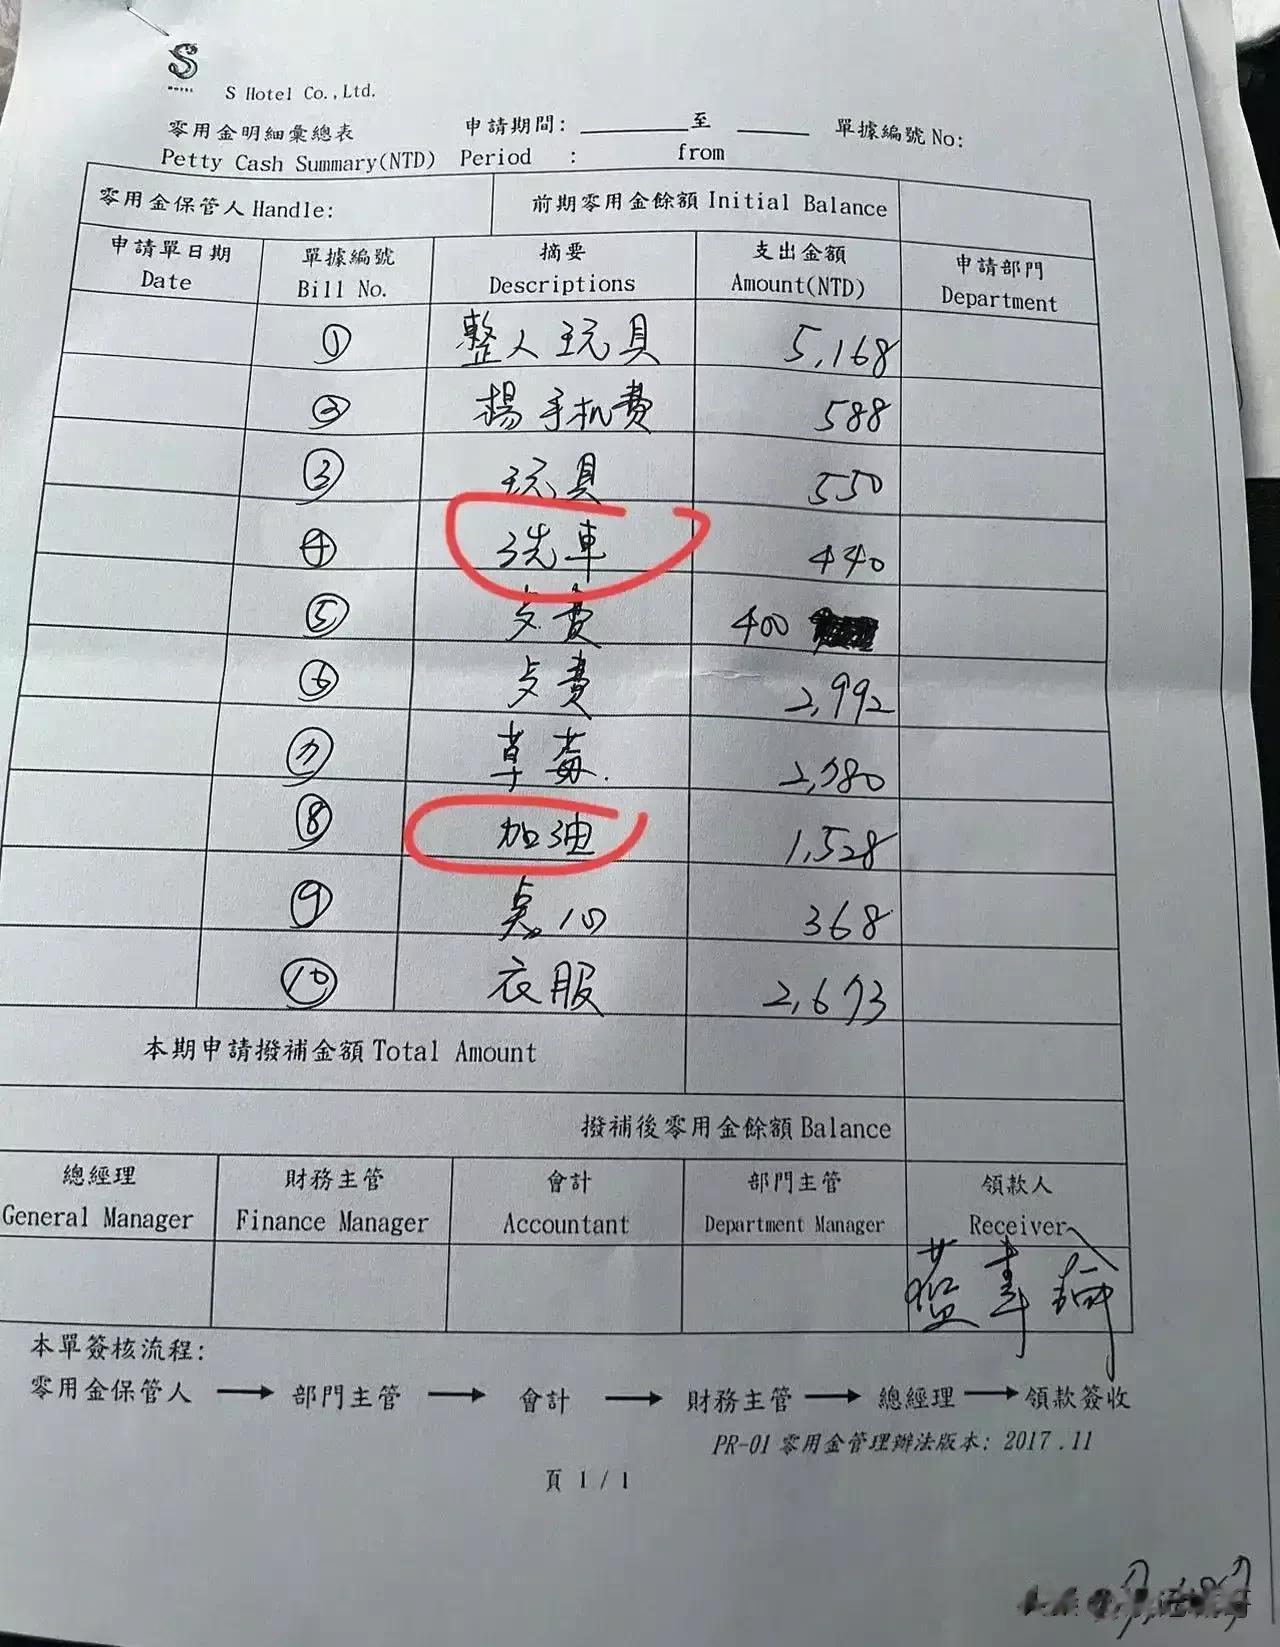 S
HOTEL
S Hotel Co.,Ltd.
零用金明細彙總表 申請期間: 至 單據編號 No:
Petty Cash Summary(NTD) Period : from
零用金保管人 Handle: 前期零用金餘額 Initial Balance
申請單日期 單據編號 摘要 支出金額 申請部門
Date Bill No. Descriptions Amount(NTD) Department
① 整人玩具 5,168
② 楊手机費 588
③ 玩具 550
④ 洗車 440
⑤ 費 400
⑥ 費 2,992
⑦ 草莓. 2,780
⑧ 加油 1,528
⑨ 点心 368
⑩ 衣服 2,673
本期申請撥補金額 Total Amount
撥補後零用金餘額 Balance
總經理 財務主管 會計 部門主管 領款人
General Manager Finance Manager Accountant Department Manager Receiver
本單簽核流程:
零用金保管人 → 部門主管 → 會計 → 財務主管 → 總經理 → 領款簽收
PR-01 零用金管理辦法版本: 2017.11
頁 1 / 1